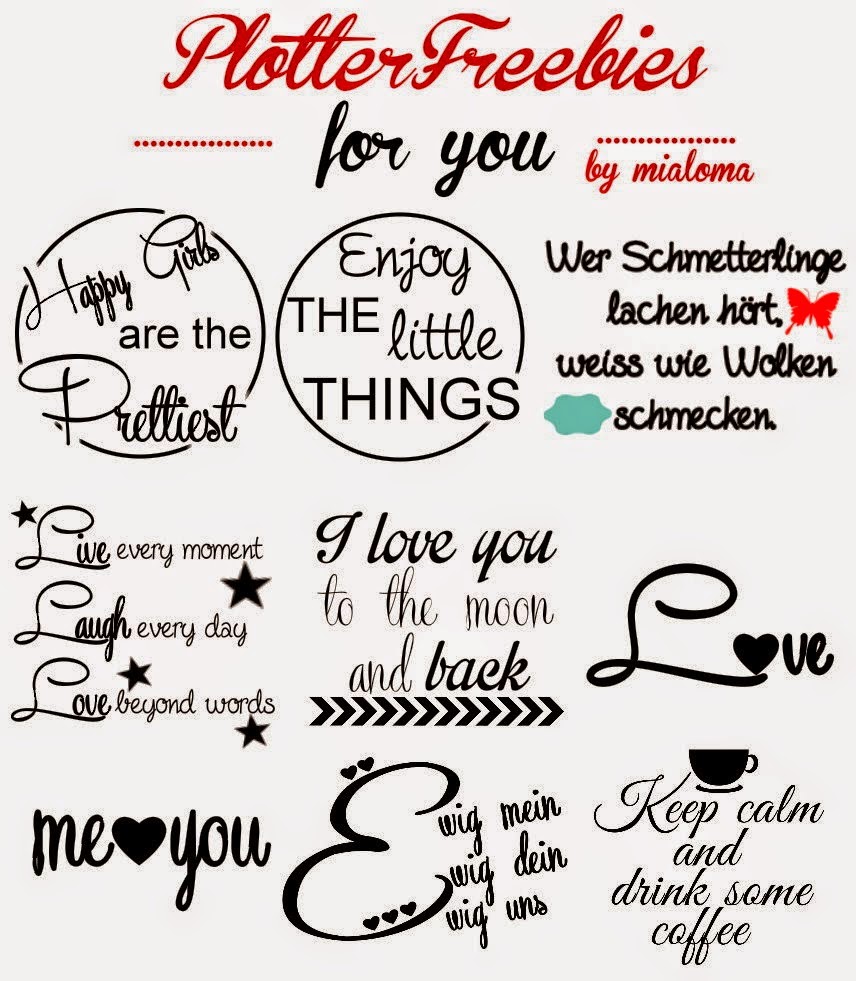 PlotterFreebies
for you
by mialoma
Happy Girls
are the
Prettiest
Enjoy
THE little
THINGS
Wer Schmetterlinge
lachen hört,
weiss wie Wolken
schmecken.
Live every moment
Laugh every day
Love beyond words
I love you
to the moon
and back
Love
me you
Ewig mein
wig dein
wig uns
Keep calm
and
drink some
coffee